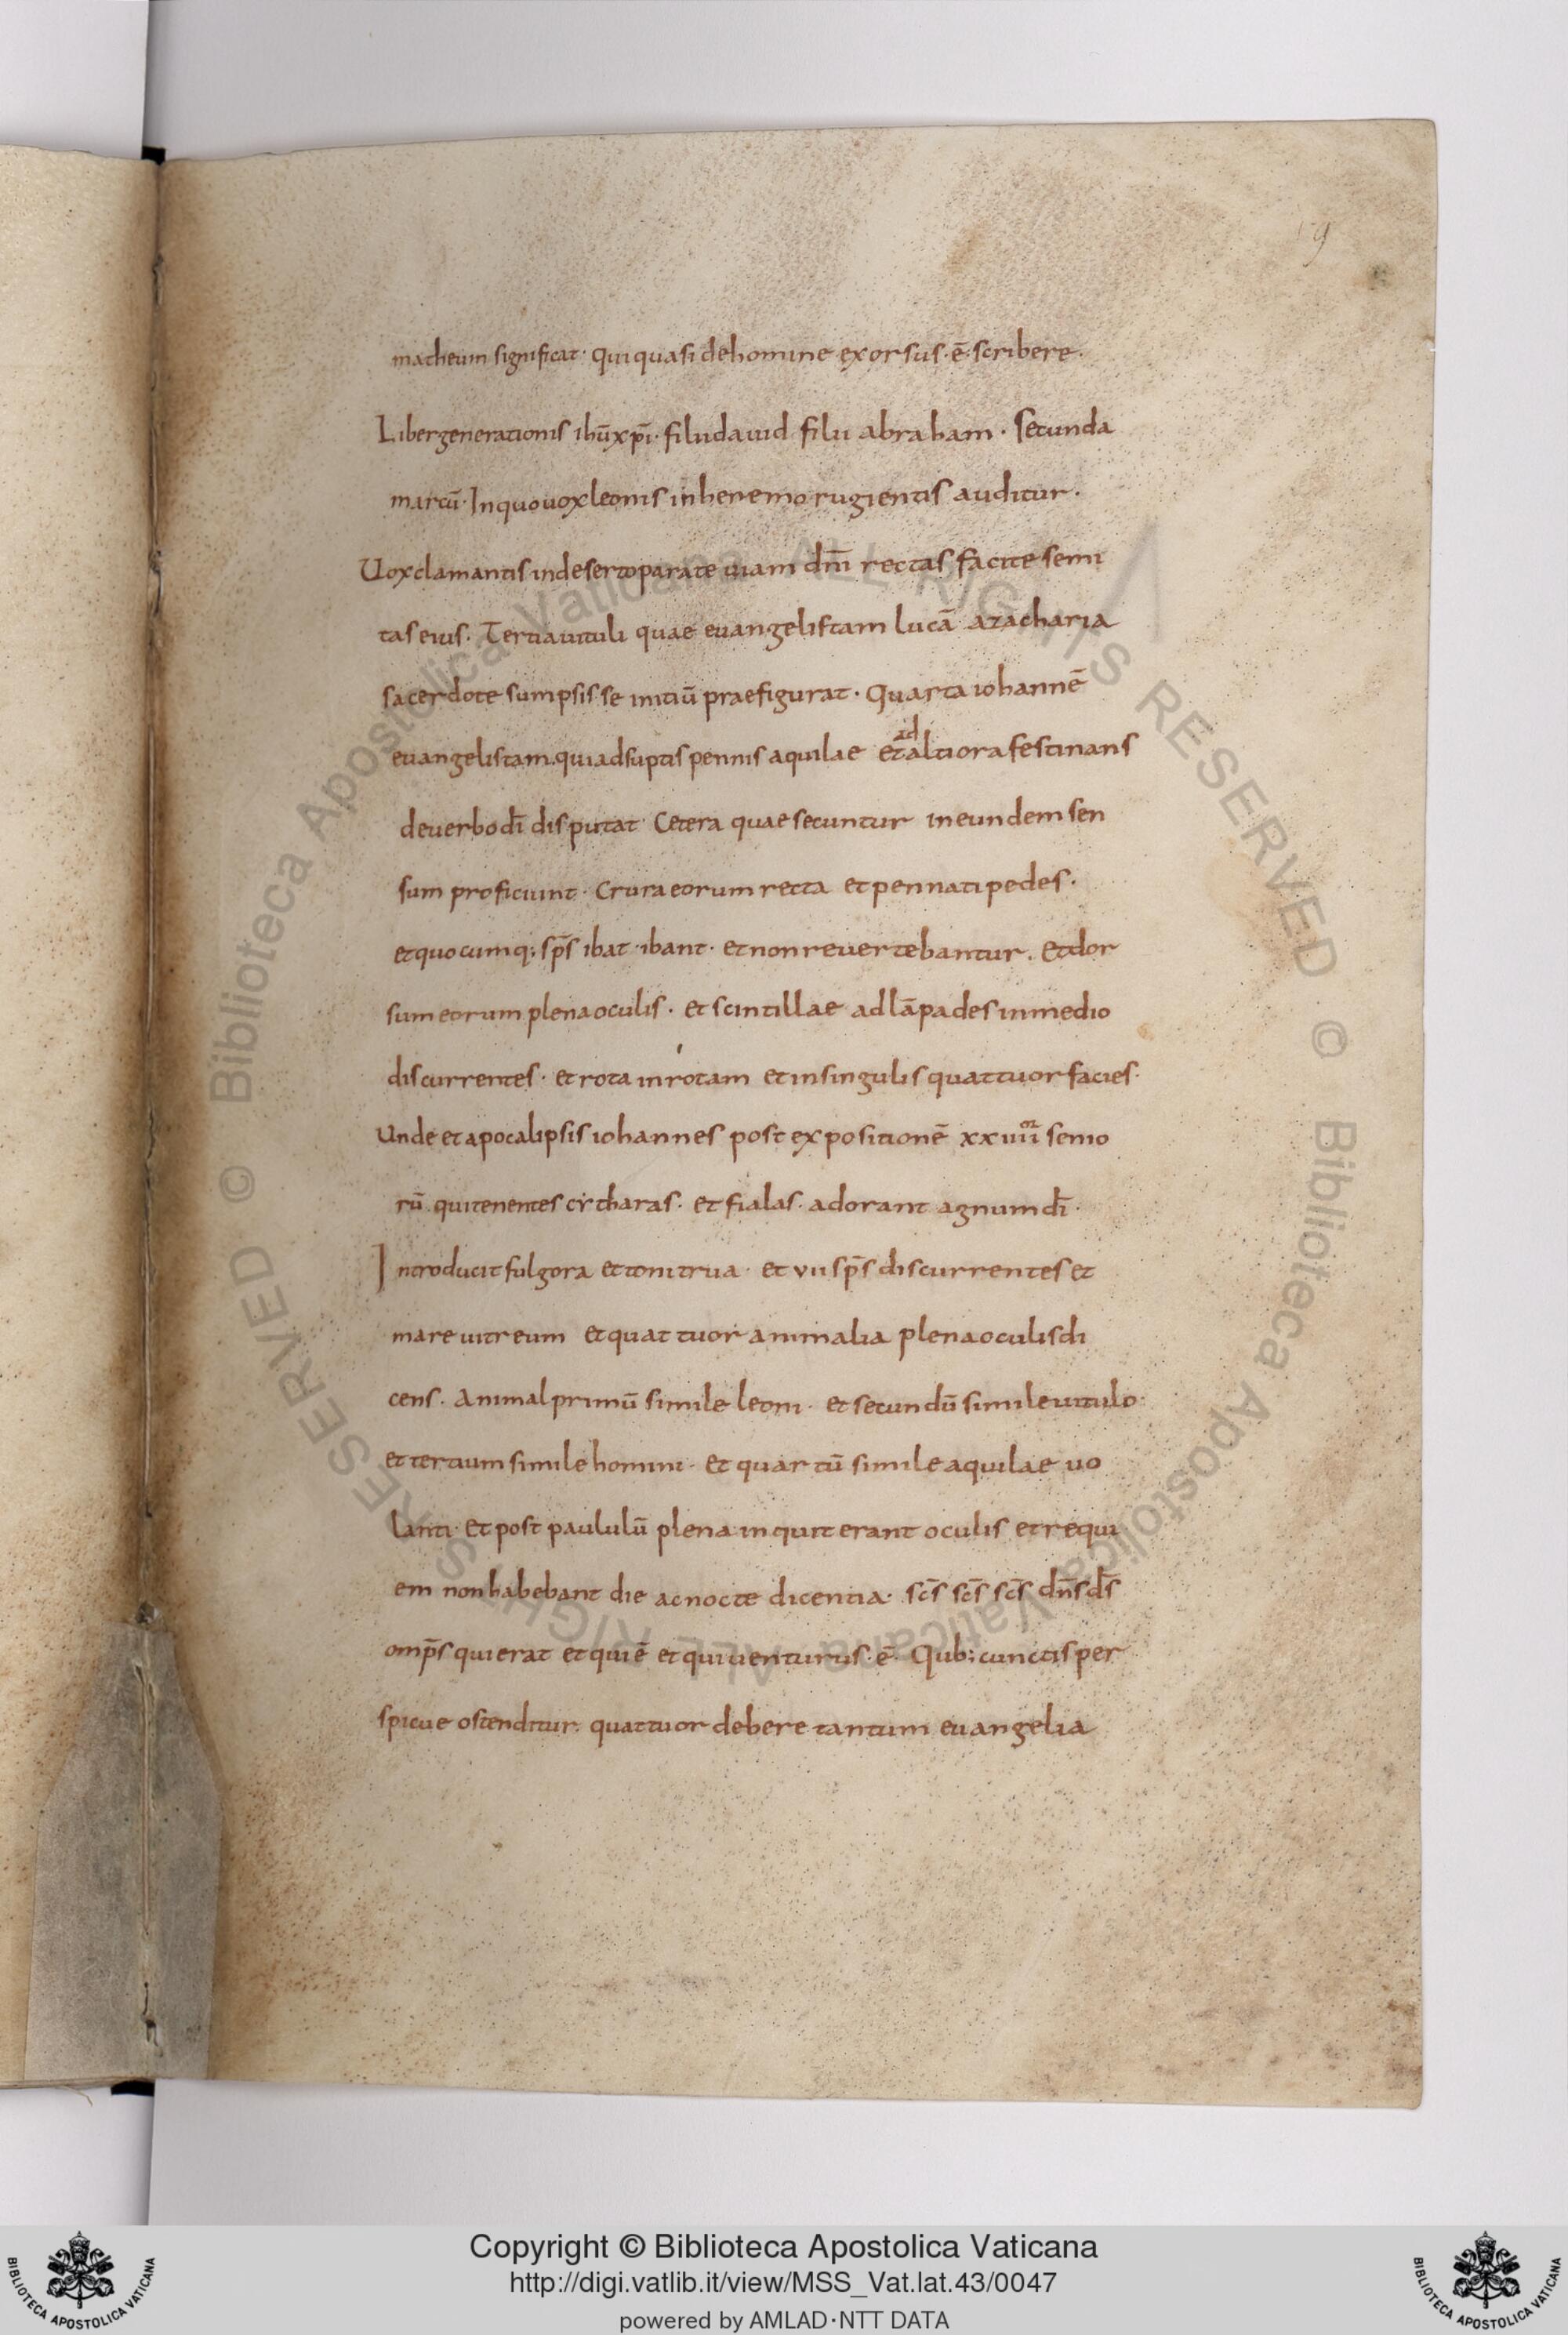 19
matheum significat· qui quasi de homine exorsus· ē· scribere·
Liber generationis ihū xpī· filii dauid filii abraham· Secunda
marcū· In quo uox leonis in heremo rugientis auditur·
Uox clamantis in deserto parate uiam dn̄i rectas facite semi
tas eius· Tertia uituli quae euangelistam lucā azacharia
sacerdote sumpsisse initiū praefigurat· Quarta iohannē
ad
euangelistam· qui adsuptis pennis aquilae et altiora festinans
de uerbo dī disputat· Cetera quae secuntur in eundem sen
sum proficiunt· Crura eorum recta et pennati pedes·
et quocumq; sp̄s ibat· ibant· et non reuertebantur· Et dor
sum eorum plena oculis· et scintillae ad lāpades in medio
discurrentes· et rota in rotam et in singulis quattuor facies·
Unde et apocalipsis iohannes post expositionē xxiiii or senio
rū· qui tenentes citharas· et fialas· adorant agnum dī·
Introducit fulgora et tonitrua· et vii sp̄s discurrentes et
mare uitreum et quattuor animalia plena oculis di
cens· Animal primū simile leoni· et secundū simile uitulo·
et tertium simile homini· et quartū simile aquilae uo
lanti· Et post paululū plena inquit erant oculis et requi
em non habebant die ac nocte dicentia· sc̄s sc̄s sc̄s dn̄s ds̄
omp̄s qui erat et qui ē et qui uenturus· ē· Quib; cunctis per
spicue ostenditur· quattuor debere tantum euangelia
© Biblioteca Apostolica Vaticana ALL RIGHTS RESERVED © Biblioteca Apostolica Vaticana ALL RIGHTS RESERVED
Copyright © Biblioteca Apostolica Vaticana
http://digi.vatlib.it/view/MSS_Vat.lat.43/0047
powered by AMLAD·NTT DATA
BIBLIOTECA APOSTOLICA VATICANA
BIBLIOTECA APOSTOLICA VATICANA